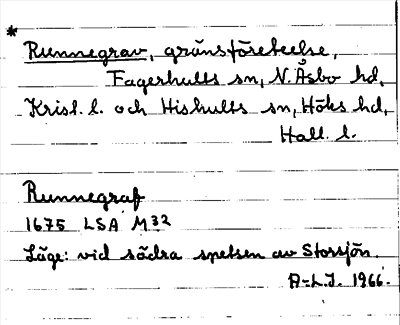 *
Runnegrav, gränsföreteelse,
Fagerhults sn, N. Åsbo hd,
Krist. l. och Hishults sn, Höks hd,
Hall. l.
Runnegraf
1675 LSA M32
Läge: vid södra spetsen av Storsjön.
A-L.J. 1966.